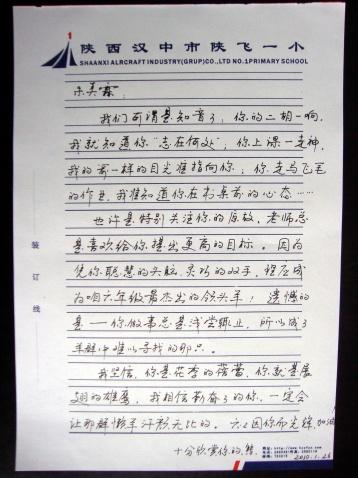 陕西汉中市陕飞一小
SHAANXI AIRCRAFT INDUSTRY(GRUP)CO.,LTD NO.1 PRIMARY SCHOOL
宋美霖：
我们可谓是知音了，你的二胡一响，
我就知道你“志在何处”，你上课一走神，
我的箭一样的目光准指向你，你走马飞毛
的作业，我准知道你在书桌前的心态……
也许是特别关注你的原故，老师总
是喜欢给你提出更高的目标。因为
凭你聪慧的头脑，灵巧的双手，理应成
为咱六年级最杰出的领头羊；遗憾的
是——你做事总是浅尝辄止，所以成了
羊群中难以寻找的那只。
我坚信，你是花季的蓓蕾，你就是展
翅的雄鹰，我相信勤奋了的你，一定会
让那群懒羊汗颜无比的。六.2因你而先锋，加油
十分欣赏你的
2010.1.26
装订线